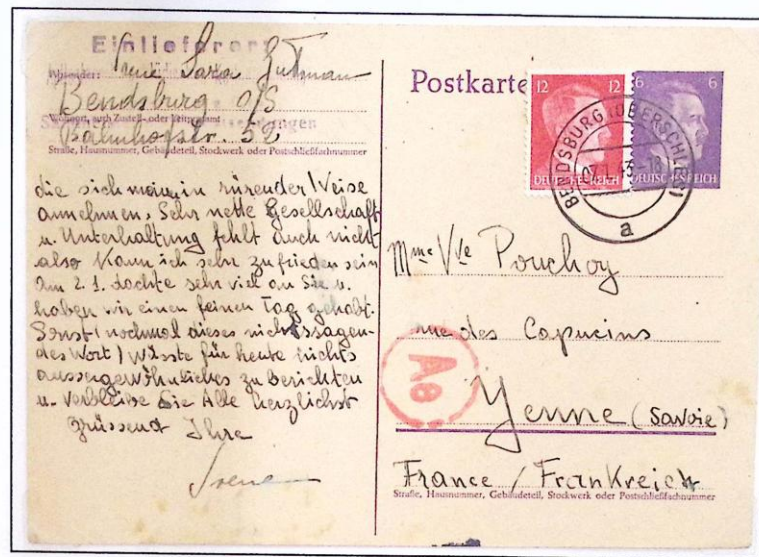 Einlieferer:
Absender: Irene Sara Gutman
Bendsburg O/S
Wohnort, auch Zustell- oder Leitpostamt
Bahnhofstr. 52
Straße, Hausnummer, Gebäudeteil, Stockwerk oder Postschließfachnummer
die sich meiner in rührender Weise
annehmen. Sehr nette Gesellschaft
u. Unterhaltung fehlt auch nicht
also kann ich sehr zufrieden sein
Am 2.1. dachte sehr viel an Sie u.
haben wir einen feinen Tag gehabt.
Sonst (nochmal dieses nichtssagen-
des Wort) wüsste für heute nichts
aussergewöhnliches zu berichten
u. verbleibe Sie Alle herzlichst
grüssend Ihre
Irene
Postkarte
12 12
DEUTSCHES REICH
6 6
DEUTSCHES REICH
BENDSBURG (OBERSCHLES)
a
Mme Vve Pouchoy
rue des Capucins
Yenne (Savoie)
France / Frankreich
Straße, Hausnummer, Gebäudeteil, Stockwerk oder Postschließfachnummer
Ae